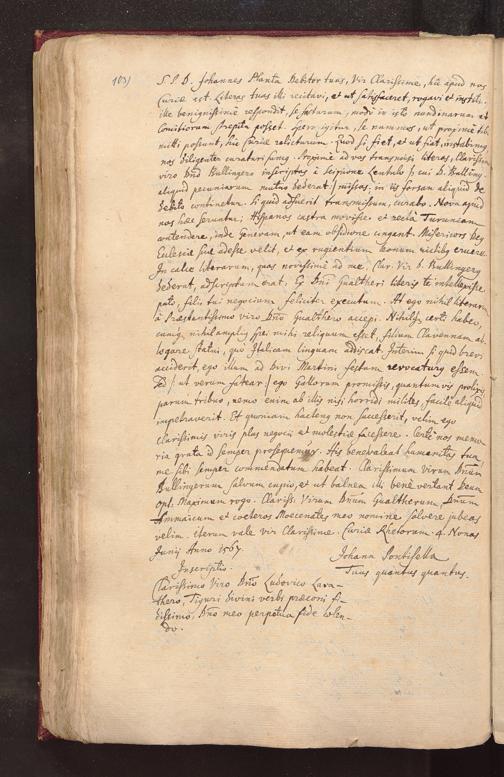 S. P. D. Johannes Planta Debitor tuus, Vir Clarissime, hic apud nos
Curiae est. Literas tuas illi recitavi, et ut satisfaceret, rogavi et institi.
ille benignissime respondit, se facturum, modo in isto nundinarum et
Comitiorum strepitu posset. Spero igitur, se nummos, ut proxime tibi
mitti possint, hic Curiae relicturum. Quod si fiet, et ut fiat, instabimus
nos diligenter curaturi sumus. Proxime ad vos transmisi literas, Clarissimo
viro Dno Bullingero inscriptas a Scipione Lentulo / cui D. Bulling.
aliquid pecuniarum mutuo dederat / missas, in iis forsan aliquid de
debito continetur. Si quid adfuerit transmissum, curabo. Nova apud
nos haec feruntur, Hispanos castra movisse et recta Taurinum
contendere, inde Genevam, ut eam obsidione cingant. Misericors Deus
Ecclesiae suae adesse velit, et ex rugientium leonum rictibus eruere.
In calce literarum, quas novissime ad me, Clar. Vir D. Bullingerus
dederat, adscriptum erat. Ex Dni Gualtheri literis te intellexisse
puto, filii tui negocium feliciter executum. At ego nihil literarum
a Praestantissimo viro Dno Gualthero accepi. Nihilque certi habeo,
cumque nihil amplius spei mihi reliquum esset, filium Clavennam ab-
legare statui, quo Italicam linguam addiscat. Interim si quid brevi
acciderit, ego illum ad Divi Martini festum revocaturus essem.
Sed / ut verum fatear / ego Gallorum promissis, quantumvis prolixis
parum tribuo, nemo enim ab illis nisi horridi milites facile aliquid
impetraverit. Et quoniam hactenus non successerit, velim ego
clarissimis viris plus negocii et molestiae facessere. Certe nos memo-
ria grata id semper prosequemur. His bene valeat humanitas tua,
me sibi semper commendatum habeat. Clarissimum Virum Dnum
Bullingerum salvum cupio, et ut balneum illi bene vertant Deum
Opt. Maximum rogo. Clariss. Virum Dnum Gualtherum, Dnum
Ammaicum et coeteros Moecenates meo nomine salvere jubeas
velim. iterum vale vir Clarissime. Curiae Rhetorum. 4. Nonas
Junij Anno 1567
Johann Pontisella
Tuus quantus quantus.
Inscriptio.
Clarissimo Viro Dno Ludovico Lava-
thero, Tiguri divini verbi praeconi fi-
dissimo, Dno meo perpetua fide colen-
do.